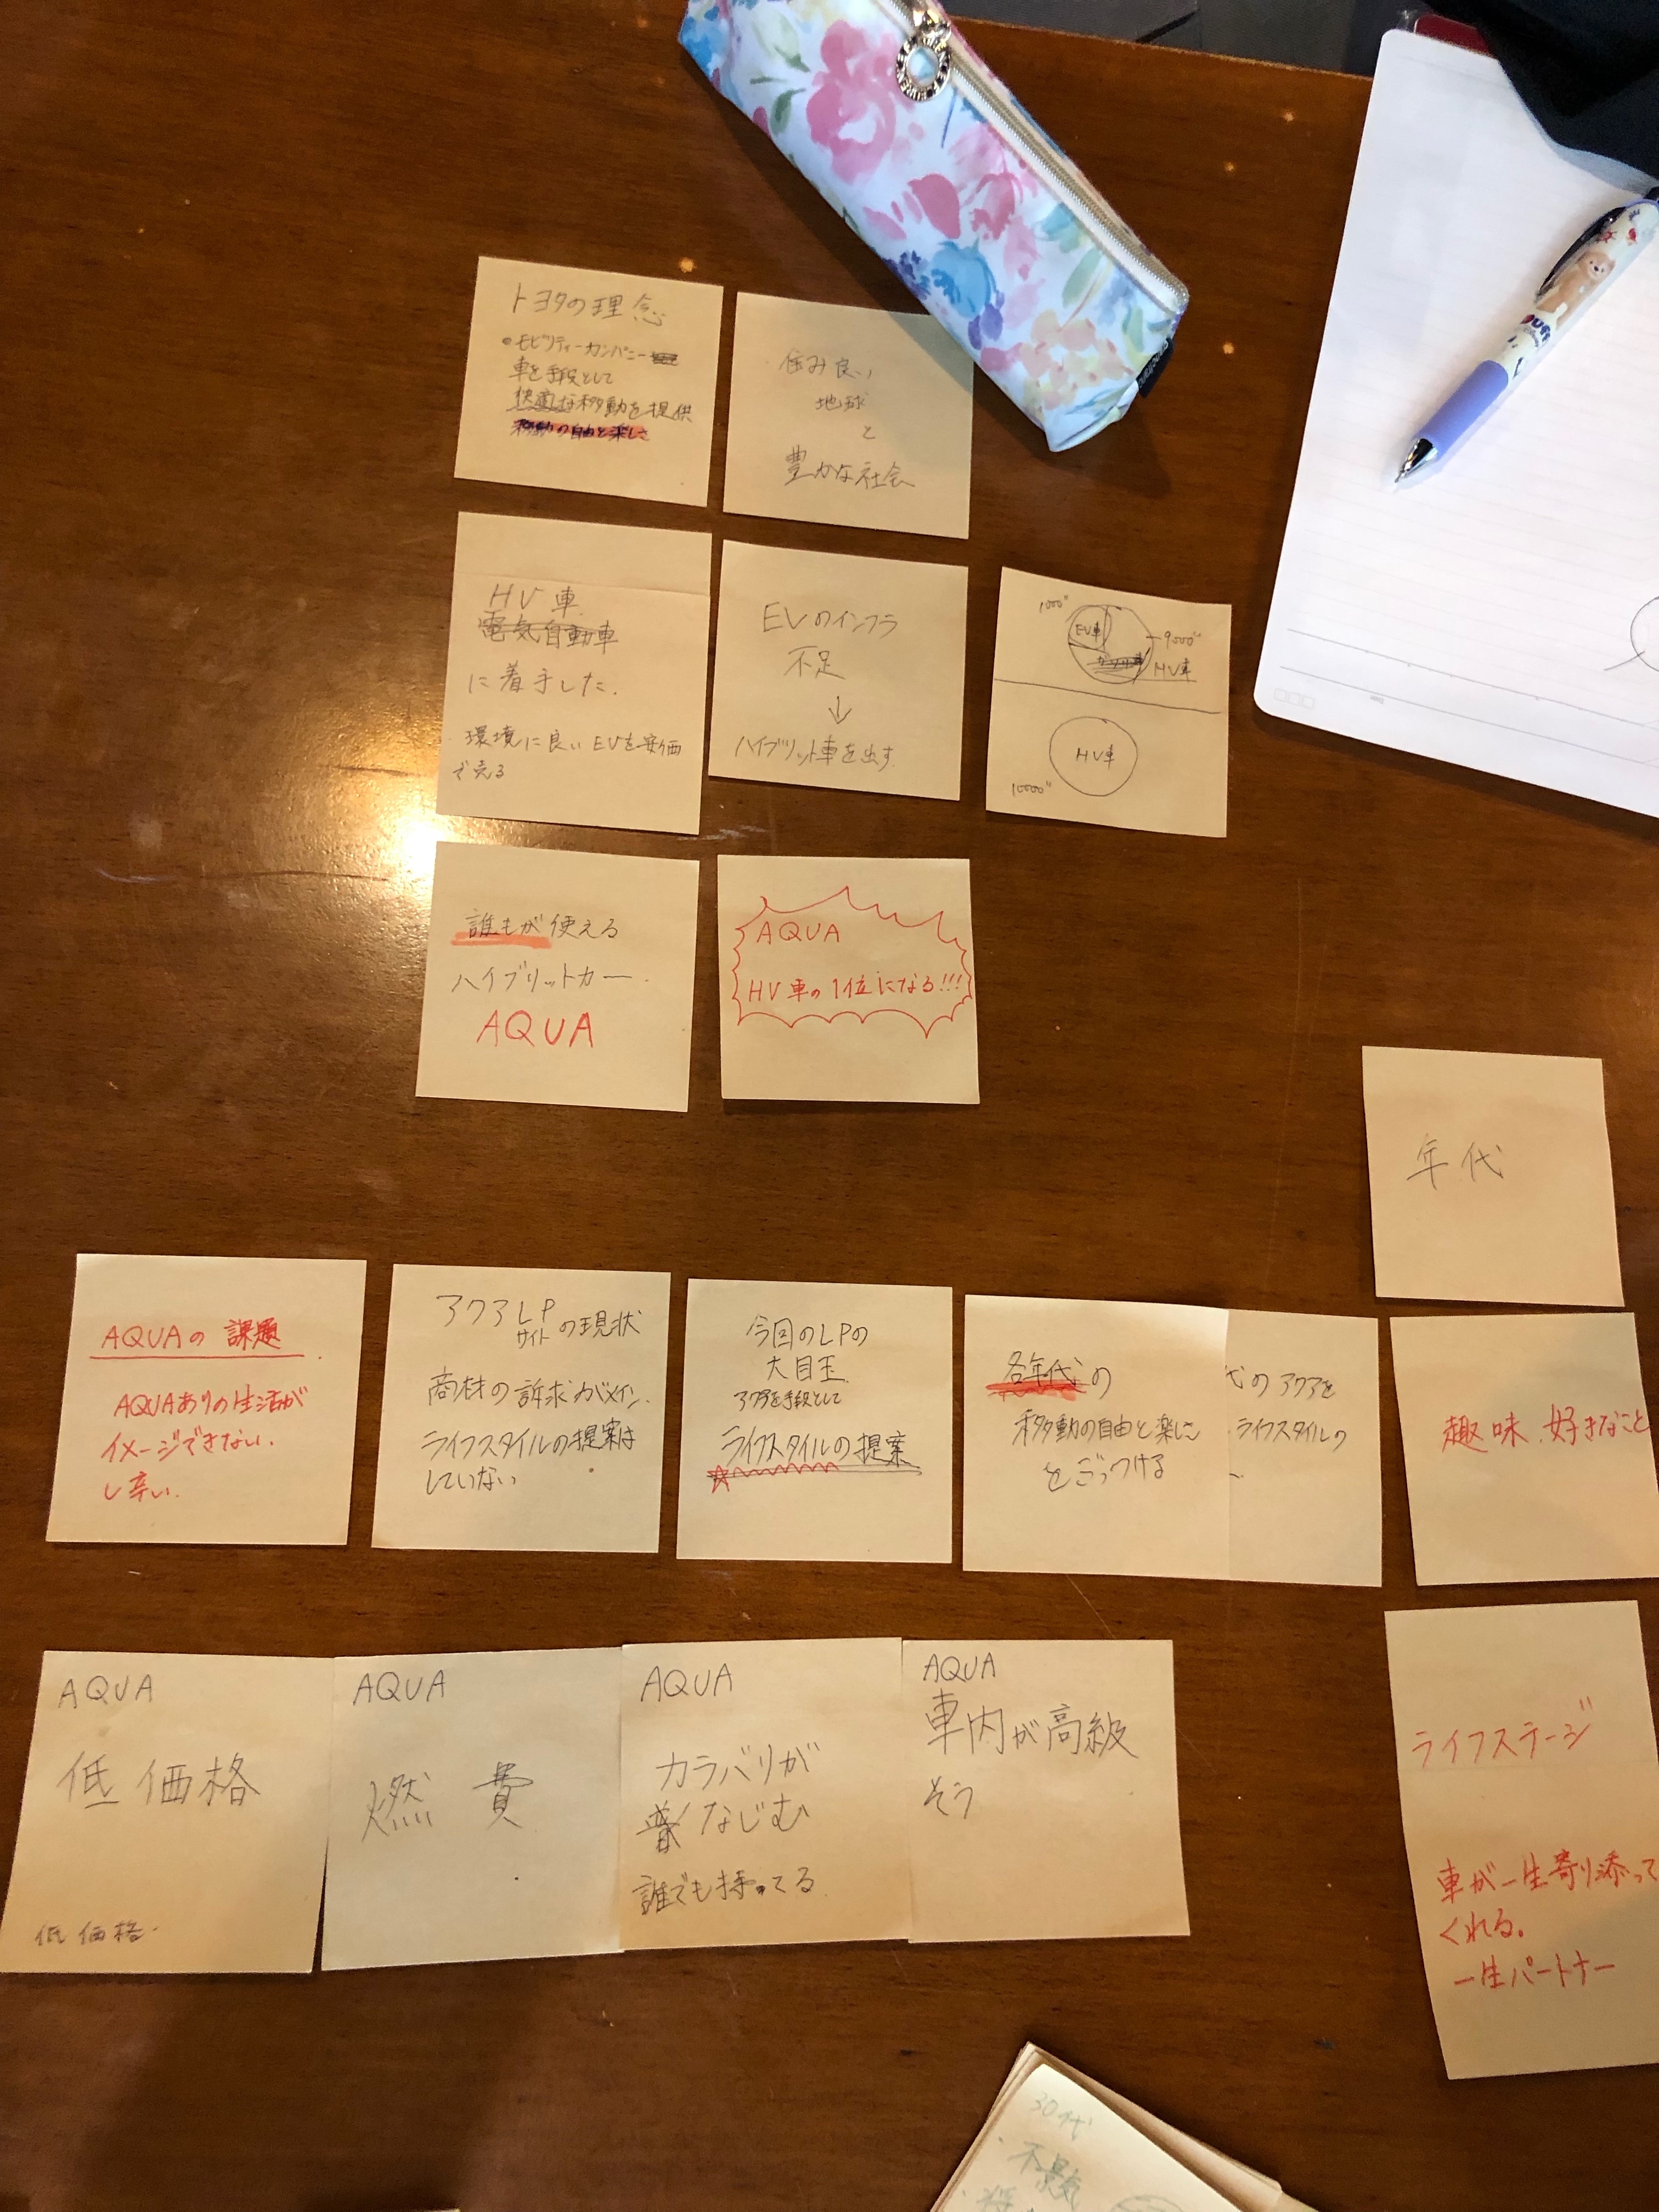 トヨタの理念
・モビリティーカンパニー
車を手段として
快適な移動を提供
移動の自由と楽しさ
住み良い
地球
と
豊かな社会
HV車
電気自動車
に着手した.
環境に良いEVを安価
で売る
EVのインフラ
不足
↓
ハイブリット車を出す.
1000"
EV車
9000"
HV車
HV車
10000"
誰もが使える
ハイブリットカー.
AQUA
AQUA
HV車の1位になる!!!
年代
AQUAの課題
AQUAありの生活が
イメージできない.
し辛い.
アクアLP
サイトの現状
商材の訴求がメイン.
ライフスタイルの提案は
していない
今回のLPの
大目玉
アクアを手段として
ライフスタイルの提案
各年代の
移動の自由と楽しさ
をこっつける
代のアクアを
ライフスタイルの
趣味.好きなこと
AQUA
低価格
低価格.
AQUA
燃費
AQUA
カラバリが
なじむ
誰でも持ってる
AQUA
車内が高級
そう
ライフステージ
車が一生寄り添って
くれる.
一生パートナー
30代
・不景気